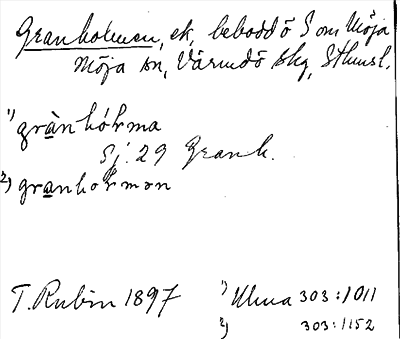 Granholmen, ek, bebodd ö S om Möja
Möja sn, Värmdö skg, Sthmsl.
1) grànhólma
Sj. 29 Granh.
2) granholmən
T. Rubin 1897
1) Ulma 303:1011
2) 303:1152